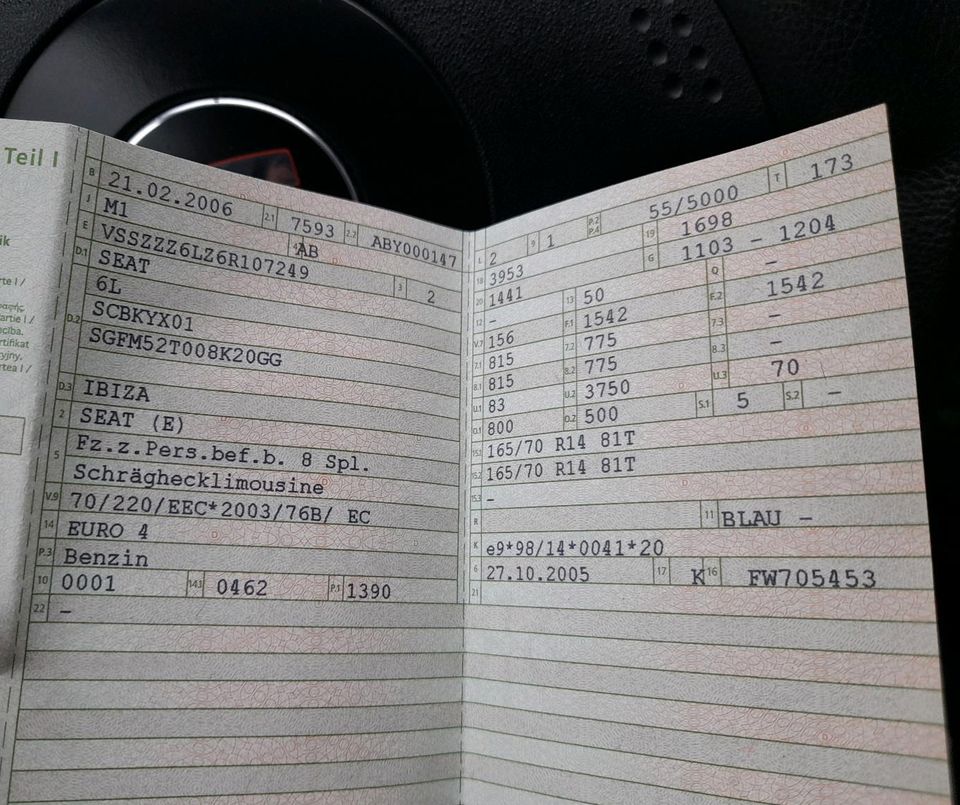 Teil I
B 21.02.2006 2.1 7593 2.2 ABY000147
J M1 4 AB
E VSSZZZ6LZ6R107249 3 2
D.1 SEAT
6L
D.2 SCBKYX01
SGFM52T008K20GG
D.3 IBIZA
2 SEAT (E)
5 Fz.z.Pers.bef.b. 8 Spl.
Schräghecklimousine
V.9 70/220/EEC*2003/76B/ EC
14 EURO 4
P.3 Benzin
10 0001 14.1 0462 P.1 1390
22 -
L 2 9 1 P.2 P.4 55/5000 T 173
18 3953 19 1698
20 1441 G 1103 - 1204
12 - 13 50 Q -
V.7 156 F.1 1542 F.2 1542
7.1 815 7.2 775 7.3 -
8.1 815 8.2 775 8.3 -
U.1 83 U.2 3750 U.3 70
O.1 800 O.2 500 S.1 5 S.2 -
15.1 165/70 R14 81T
15.2 165/70 R14 81T
15.3 -
R 11 BLAU -
K e9*98/14*0041*20
6 27.10.2005 17 K 16 FW705453
21